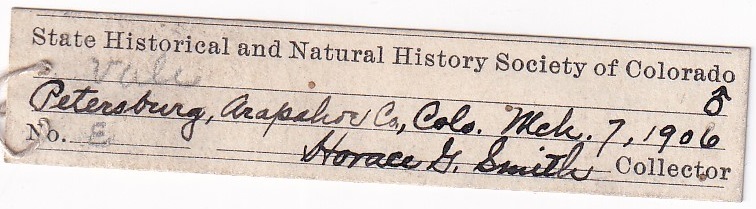 State Historical and Natural History Society of Colorado
♂
Petersburg, Arapahoe Co., Colo. Mch. 7, 1906
No. E
Horace G. Smith Collector